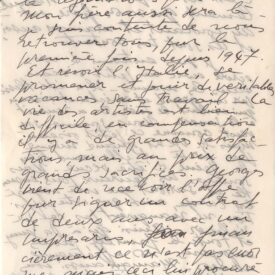 Mon père aussi sera là
je suis contente de nous
retrouver tous, pour la
première fois depuis 1987.
Et revoir l'Italie, se
promener et jouir de véritables
vacances, sans travail. La
vie des artistes est bien
difficile, en compensation
il y a de grandes satisfac-
tions, mais au prix de
grands sacrifices. Georges
vient de recevoir l'offre
pour signer un contrat
de deux ans avec un
impresario, finan-
cièrement ce n'est pas
mais ceci lui